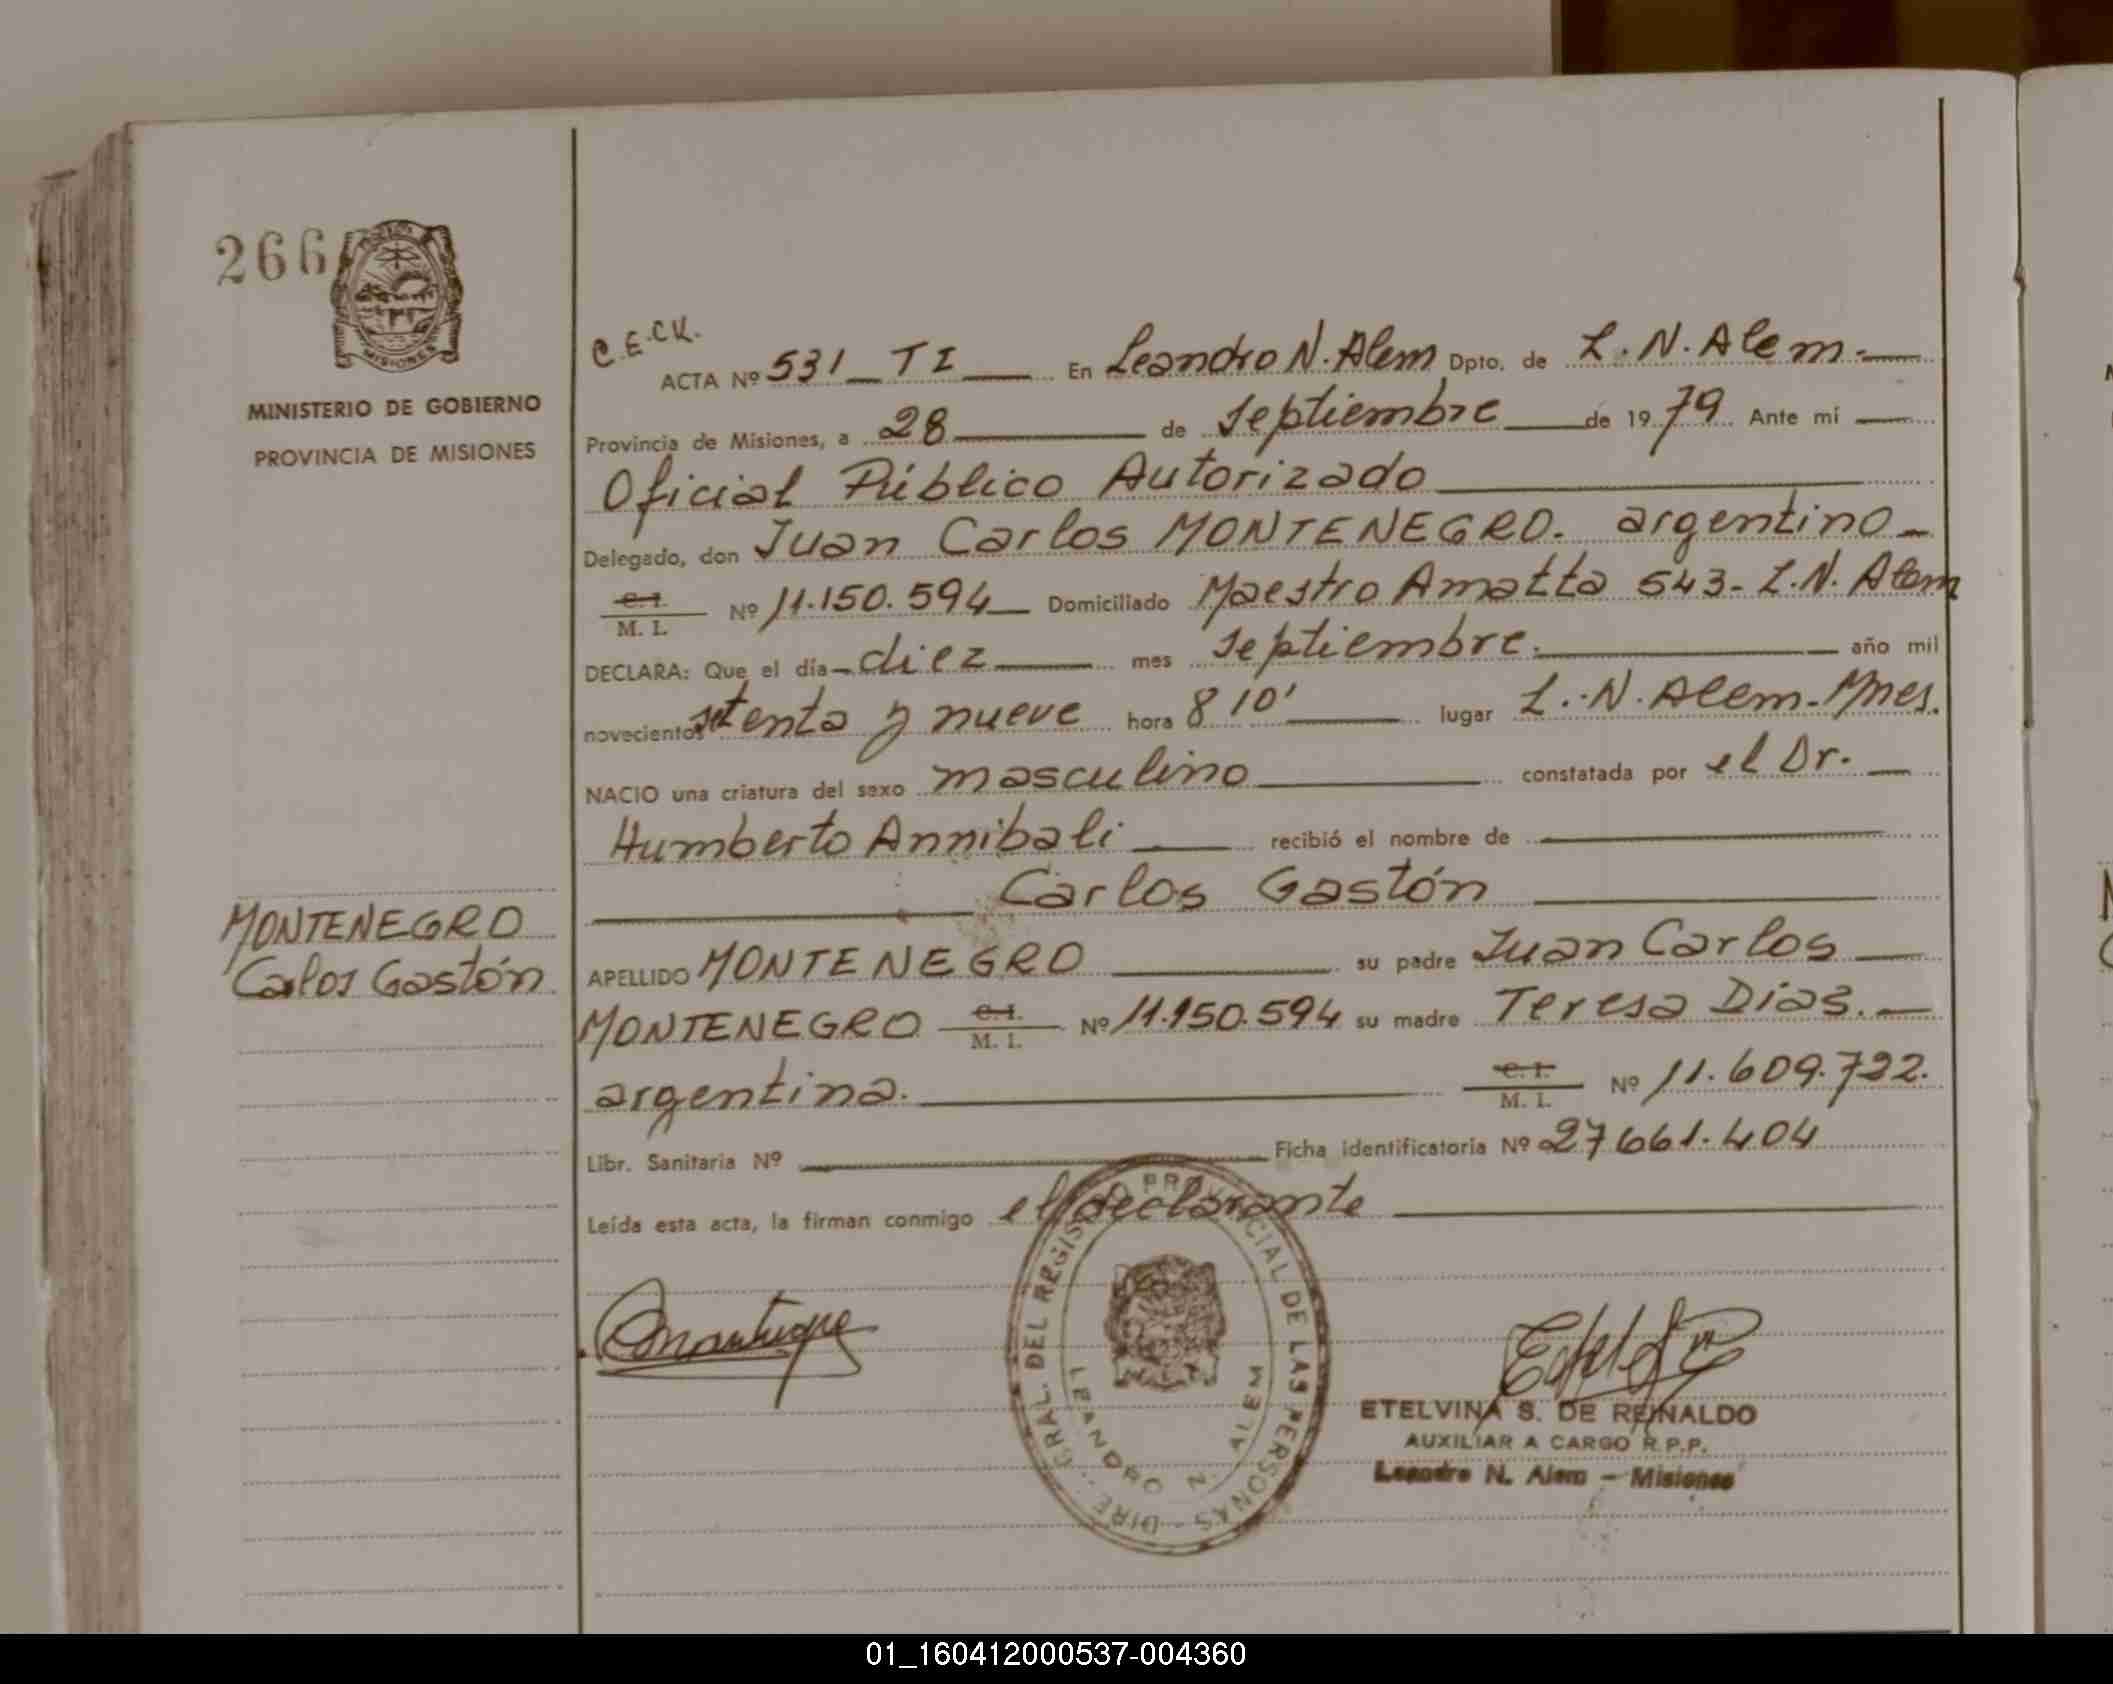 266
MISIONES
MINISTERIO DE GOBIERNO
PROVINCIA DE MISIONES
MONTENEGRO
Carlos Gastón
C.E.CK.
ACTA Nº 531 TI En Leandro N. Alem Dpto. de L. N. Alem.
Provincia de Misiones, a 28 de Septiembre de 1979 Ante mí
Oficial Público Autorizado
Delegado, don Juan Carlos MONTENEGRO. argentino
C. I.
M. I. Nº 11.150.594 Domiciliado Maestro Amatta 543 - L. N. Alem
DECLARA: Que el día diez mes Septiembre. año mil
novecientos setenta y nueve hora 8 10' lugar L. N. Alem - Mnes.
NACIO una criatura del sexo masculino constatada por el Dr.
Humberto Annibali recibió el nombre de
Carlos Gastón
APELLIDO MONTENEGRO su padre Juan Carlos
MONTENEGRO C. I. M. I. Nº 11.150.594 su madre Teresa Dias.
argentina. C. I. M. I. Nº 11.609.722.
Libr. Sanitaria Nº Ficha identificatoria Nº 27661.404
Leída esta acta, la firman conmigo el declarante
DIRE. GRAL. DEL REGISTRO PROVINCIAL DE LAS PERSONAS
LEANDRO N. ALEM
ETELVINA S. DE REINALDO
AUXILIAR A CARGO R.P.P.
Leandro N. Alem - Misiones
01_160412000537-004360